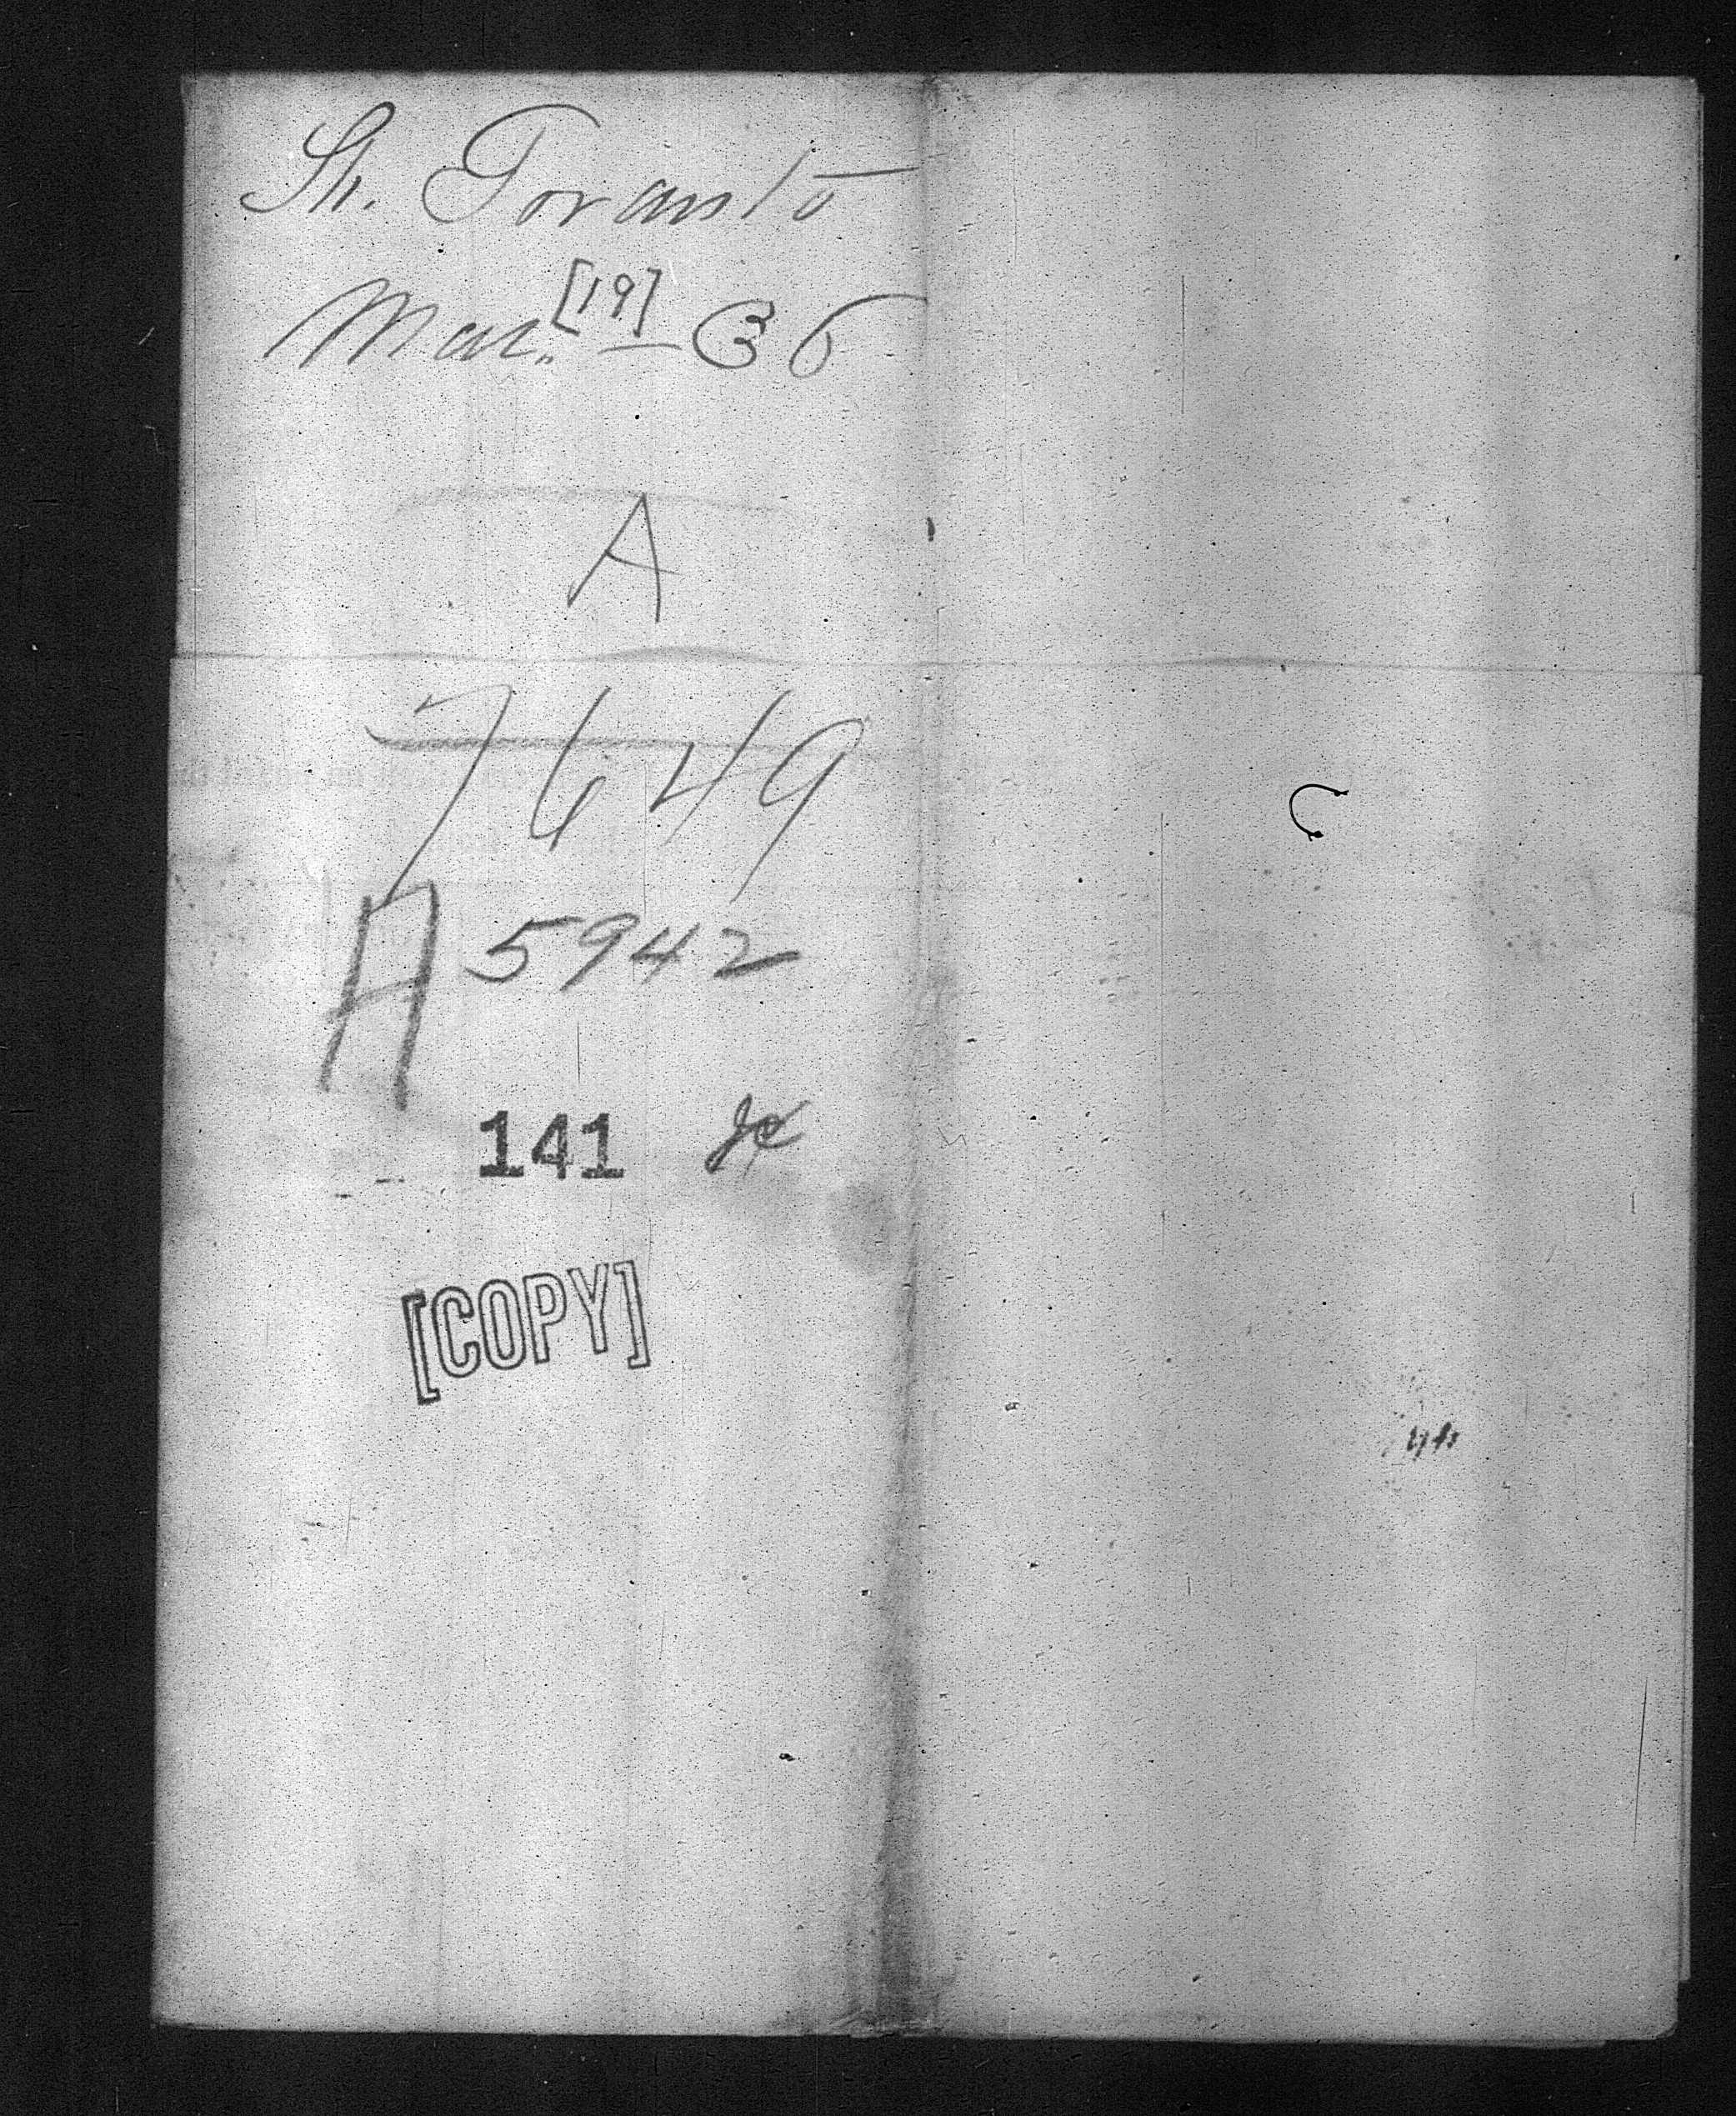 Sh. Toranto
Mar. [19] 36
A
7649
A 5942
141
[COPY]